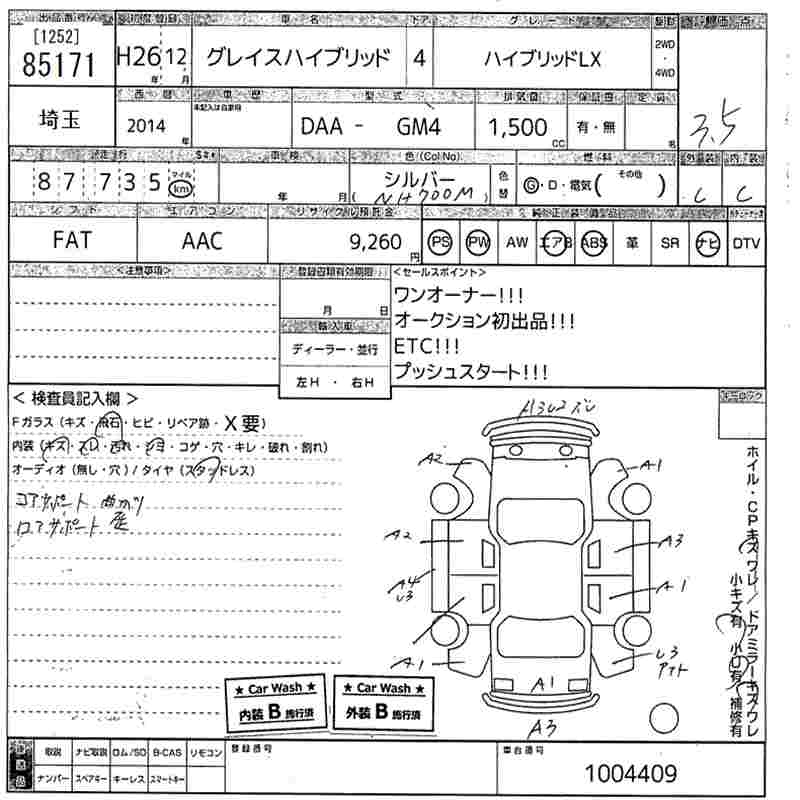 出品番号 初度登録 車名 ドア グレード 駆動 評価点
[1252]
85171 H26年 12月 グレイスハイブリッド 4 ハイブリッドLX 2WD・4WD
3.5
埼玉 西暦 車歴 型式 排気量 保証書 定員
未記入は自家用
2014年 DAA - GM4 1,500cc 有・無 名
走行 車検 色(Col No) 燃料 外装 内装
87735 マイル km 年 月 シルバー (NH700M) 色替 G・D・電気( その他 ) C C
シフト エアコン リサイクル預託金 純正装備品
FAT AAC 9,260円 PS PW AW エアB ABS 革 SR ナビ DTV
<注意事項> 登録書類有効期限 <セールスポイント>
月 日 ワンオーナー!!!
輸入車 オークション初出品!!!
ディーラー・並行 ETC!!!
左H・右H プッシュスタート!!!
< 検査員記入欄 >
Fガラス (キズ・飛石・ヒビ・リペア跡・X要)
内装 (キズ・スレ・汚れ・シミ・コゲ・穴・キレ・破れ・割れ)
オーディオ (無し・穴) / タイヤ (スタッドレス)
コアサポート 曲がり
ロアサポート 歪
A3U2ズレ
A2 A1
A2 A3
A4 U3 A1
A1 U3 アト
A1
A3
ホイル・CPキズワレ/ドアミラーキズワレ
小キズ有 小凹有 補修有
★ Car Wash ★
内装 B 施行済
★ Car Wash ★
外装 B 施行済
後送品 取説 ナビ取説 ロム/SD B-CAS リモコン 登録番号 車台番号
ナンバー スペアキー キーレス スマートキー 1004409